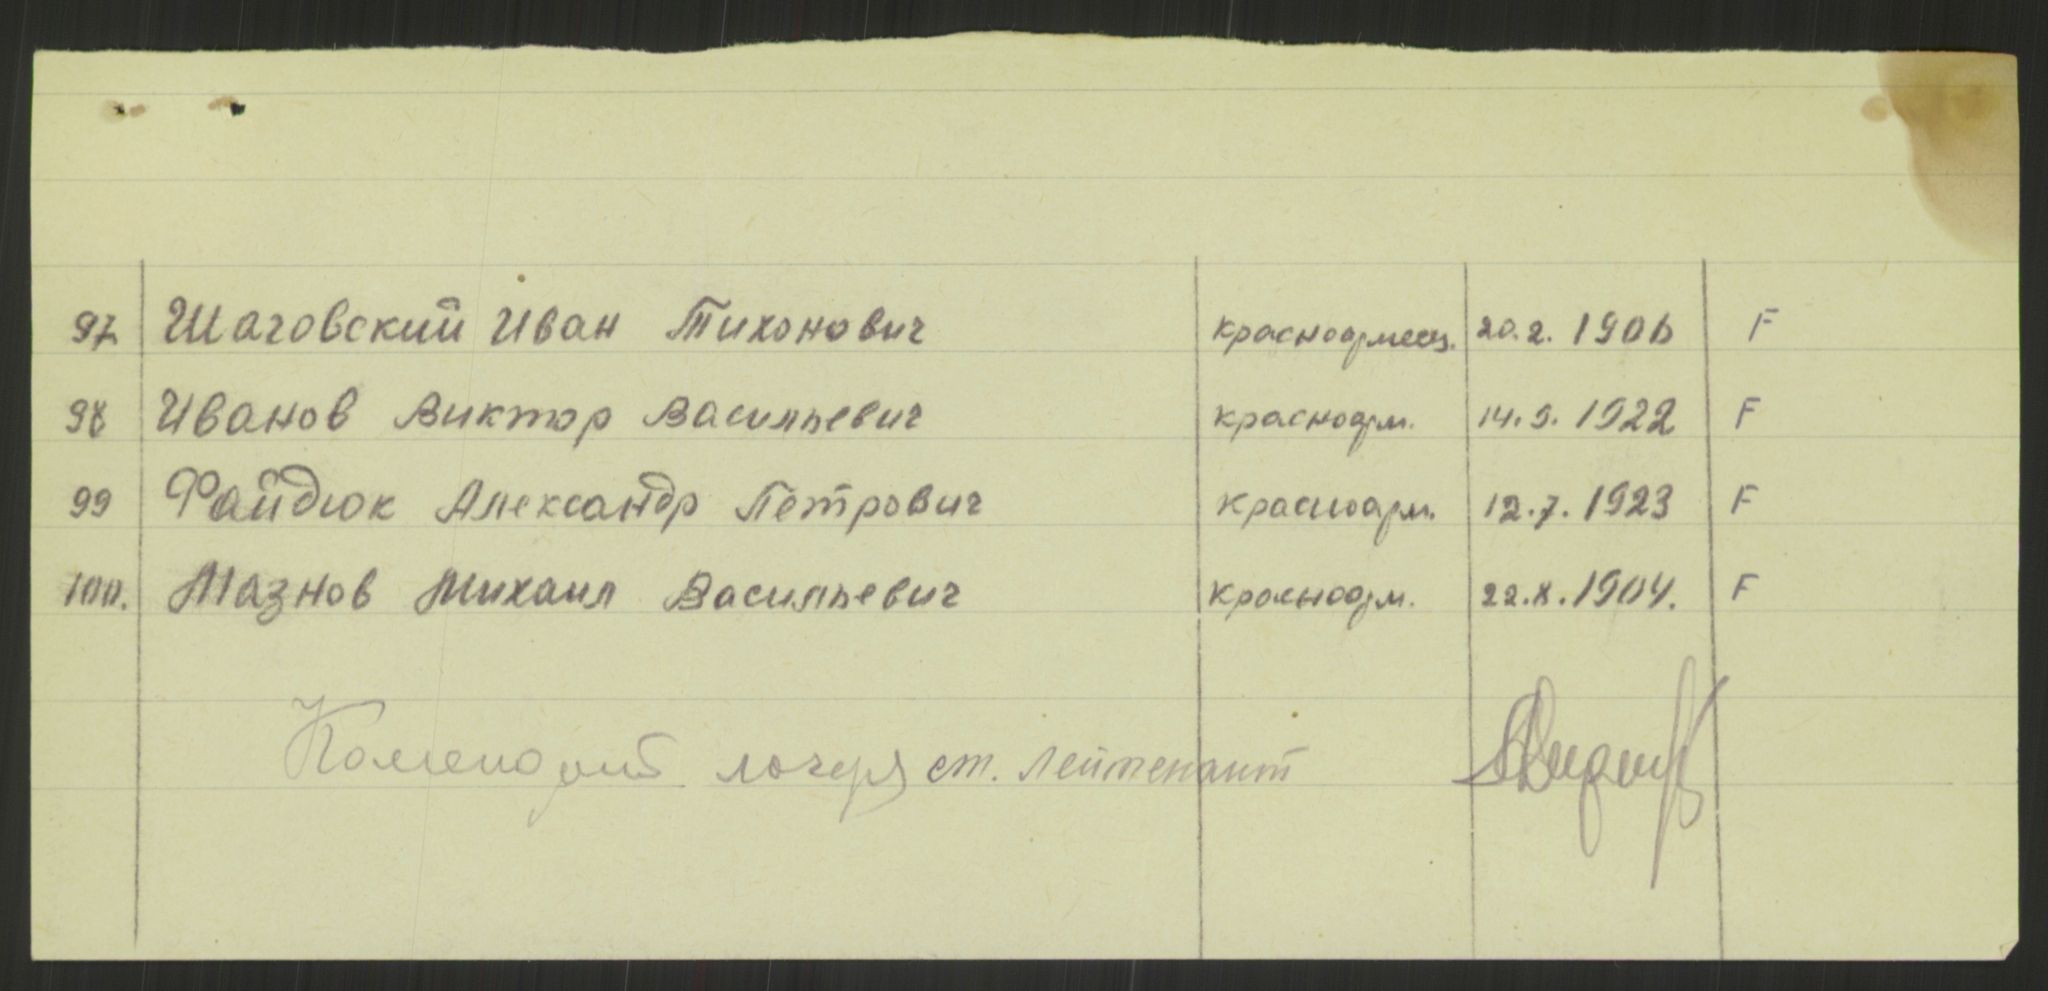 97 Шаговский Иван Тихонович красноармеец. 20.2.1906 F
98 Иванов Виктор Васильевич красноарм. 14.9.1922 F
99 Файдюк Александр Петрович красноарм. 12.7.1923 F
100. Мазнов Михаил Васильевич красноарм. 22.8.1904. F
Комендант лагеря ст. лейтенант